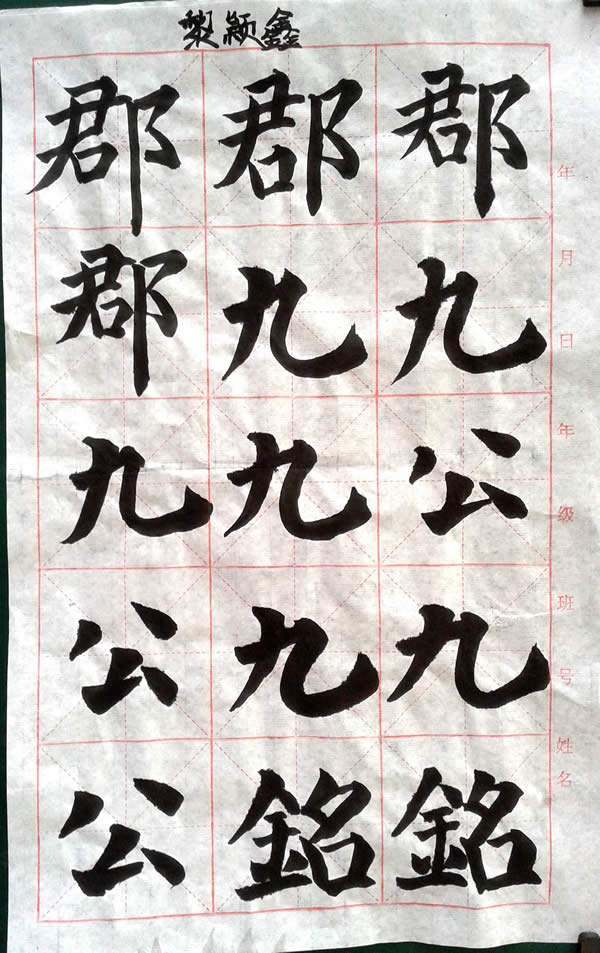 颖鑫
郡郡郡
郡九九
九九公
公九九
公銘銘
年月日年级班号姓名